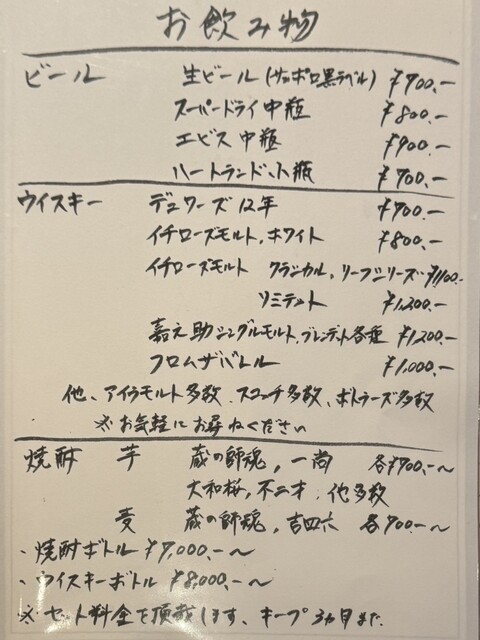 お飲み物
ビール 生ビール(サッポロ黒ラベル) ¥700.-
スーパードライ中瓶 ¥800.-
エビス中瓶 ¥900.-
ハートランド小瓶 ¥700.-
ウイスキー デュワーズ12年 ¥700.-
イチローズモルト.ホワイト ¥800.-
イチローズモルト クラシカル,リーフシリーズ ¥1100.-
リミテット ¥1,200.-
嘉之助シングルモルト,ブレンデット各種 ¥1,200.-
フロムザバトル ¥1,000.-
他、アイラモルト多数.スコッチ多数、ボトラーズ多数
※お気軽にお尋ねください
焼酎 芋 蔵の師魂,一尚 各¥700.-～
大和桜,不二才.他多数
麦 蔵の師魂,吉四六 各700.-～
・焼酎ボトル ¥7,000.-～
・ウイスキーボトル ¥8,000.-～
※セット料金を頂戴します、キープ3ヵ月まで.